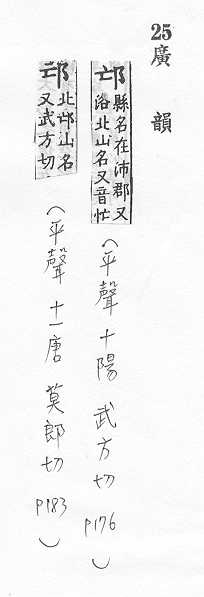 25 廣韻
邙 縣名在沛郡又
洛北山名又音忙
(平聲 十陽 武方切 P176)
邙 北邙山名
又武方切
(平聲 十一唐 莫郎切 P183)